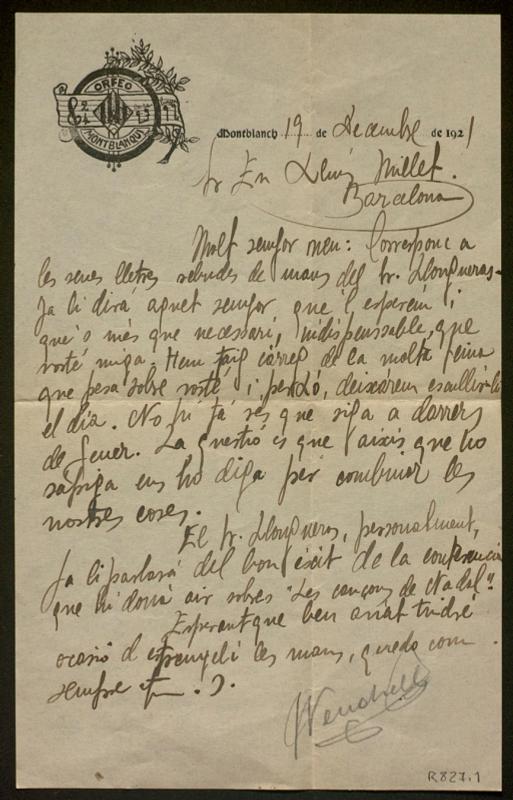 ORFEO
MONTBLANQUI
Montblanch 19 de Decembre de 1921
Sr En Lluis Millet.
Barcelona
Molt senyor meu: Corresponc a
les seves lletres rebudes de mans del Sr. Llongueras.
Ja li dirá aquet senyor que l'esperém i
qué's més que necessari, indispenssable, que
vosté vinga. Hem faig cárrec de la molta feina
que pesa sobre vosté i per xó, deixárem escullir-li
el dia. No hi fá rés que siga a darrers
de Jener. La questió es que aixís que ho
sapiga ens ho diga per combinar les
nostres coses.
El Sr. Llongueras, personalment,
ja li parlará del bon éxit de la conferencia
que hi doná air sobres "Les cançons de Nadal".
Esperant que ben aviat tindré
ocasió d'estrenyeli les mans, quedo com
sempre
R827.1